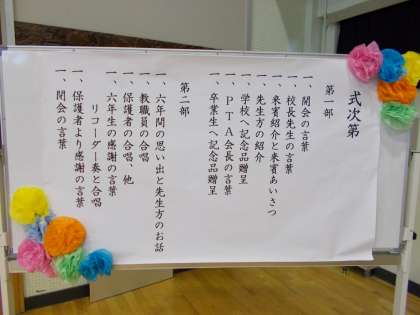 式次第
第一部
一、開会の言葉
一、校長先生の言葉
一、来賓紹介と来賓あいさつ
一、先生方の紹介
一、学校へ記念品贈呈
一、ＰＴＡ会長の言葉
一、卒業生へ記念品贈呈
第二部
一、六年間の思い出と先生方のお話
一、教職員の合唱
一、保護者の合唱、他
一、六年生の感謝の言葉
リコーダー奏と合唱
一、保護者より感謝の言葉
一、閉会の言葉